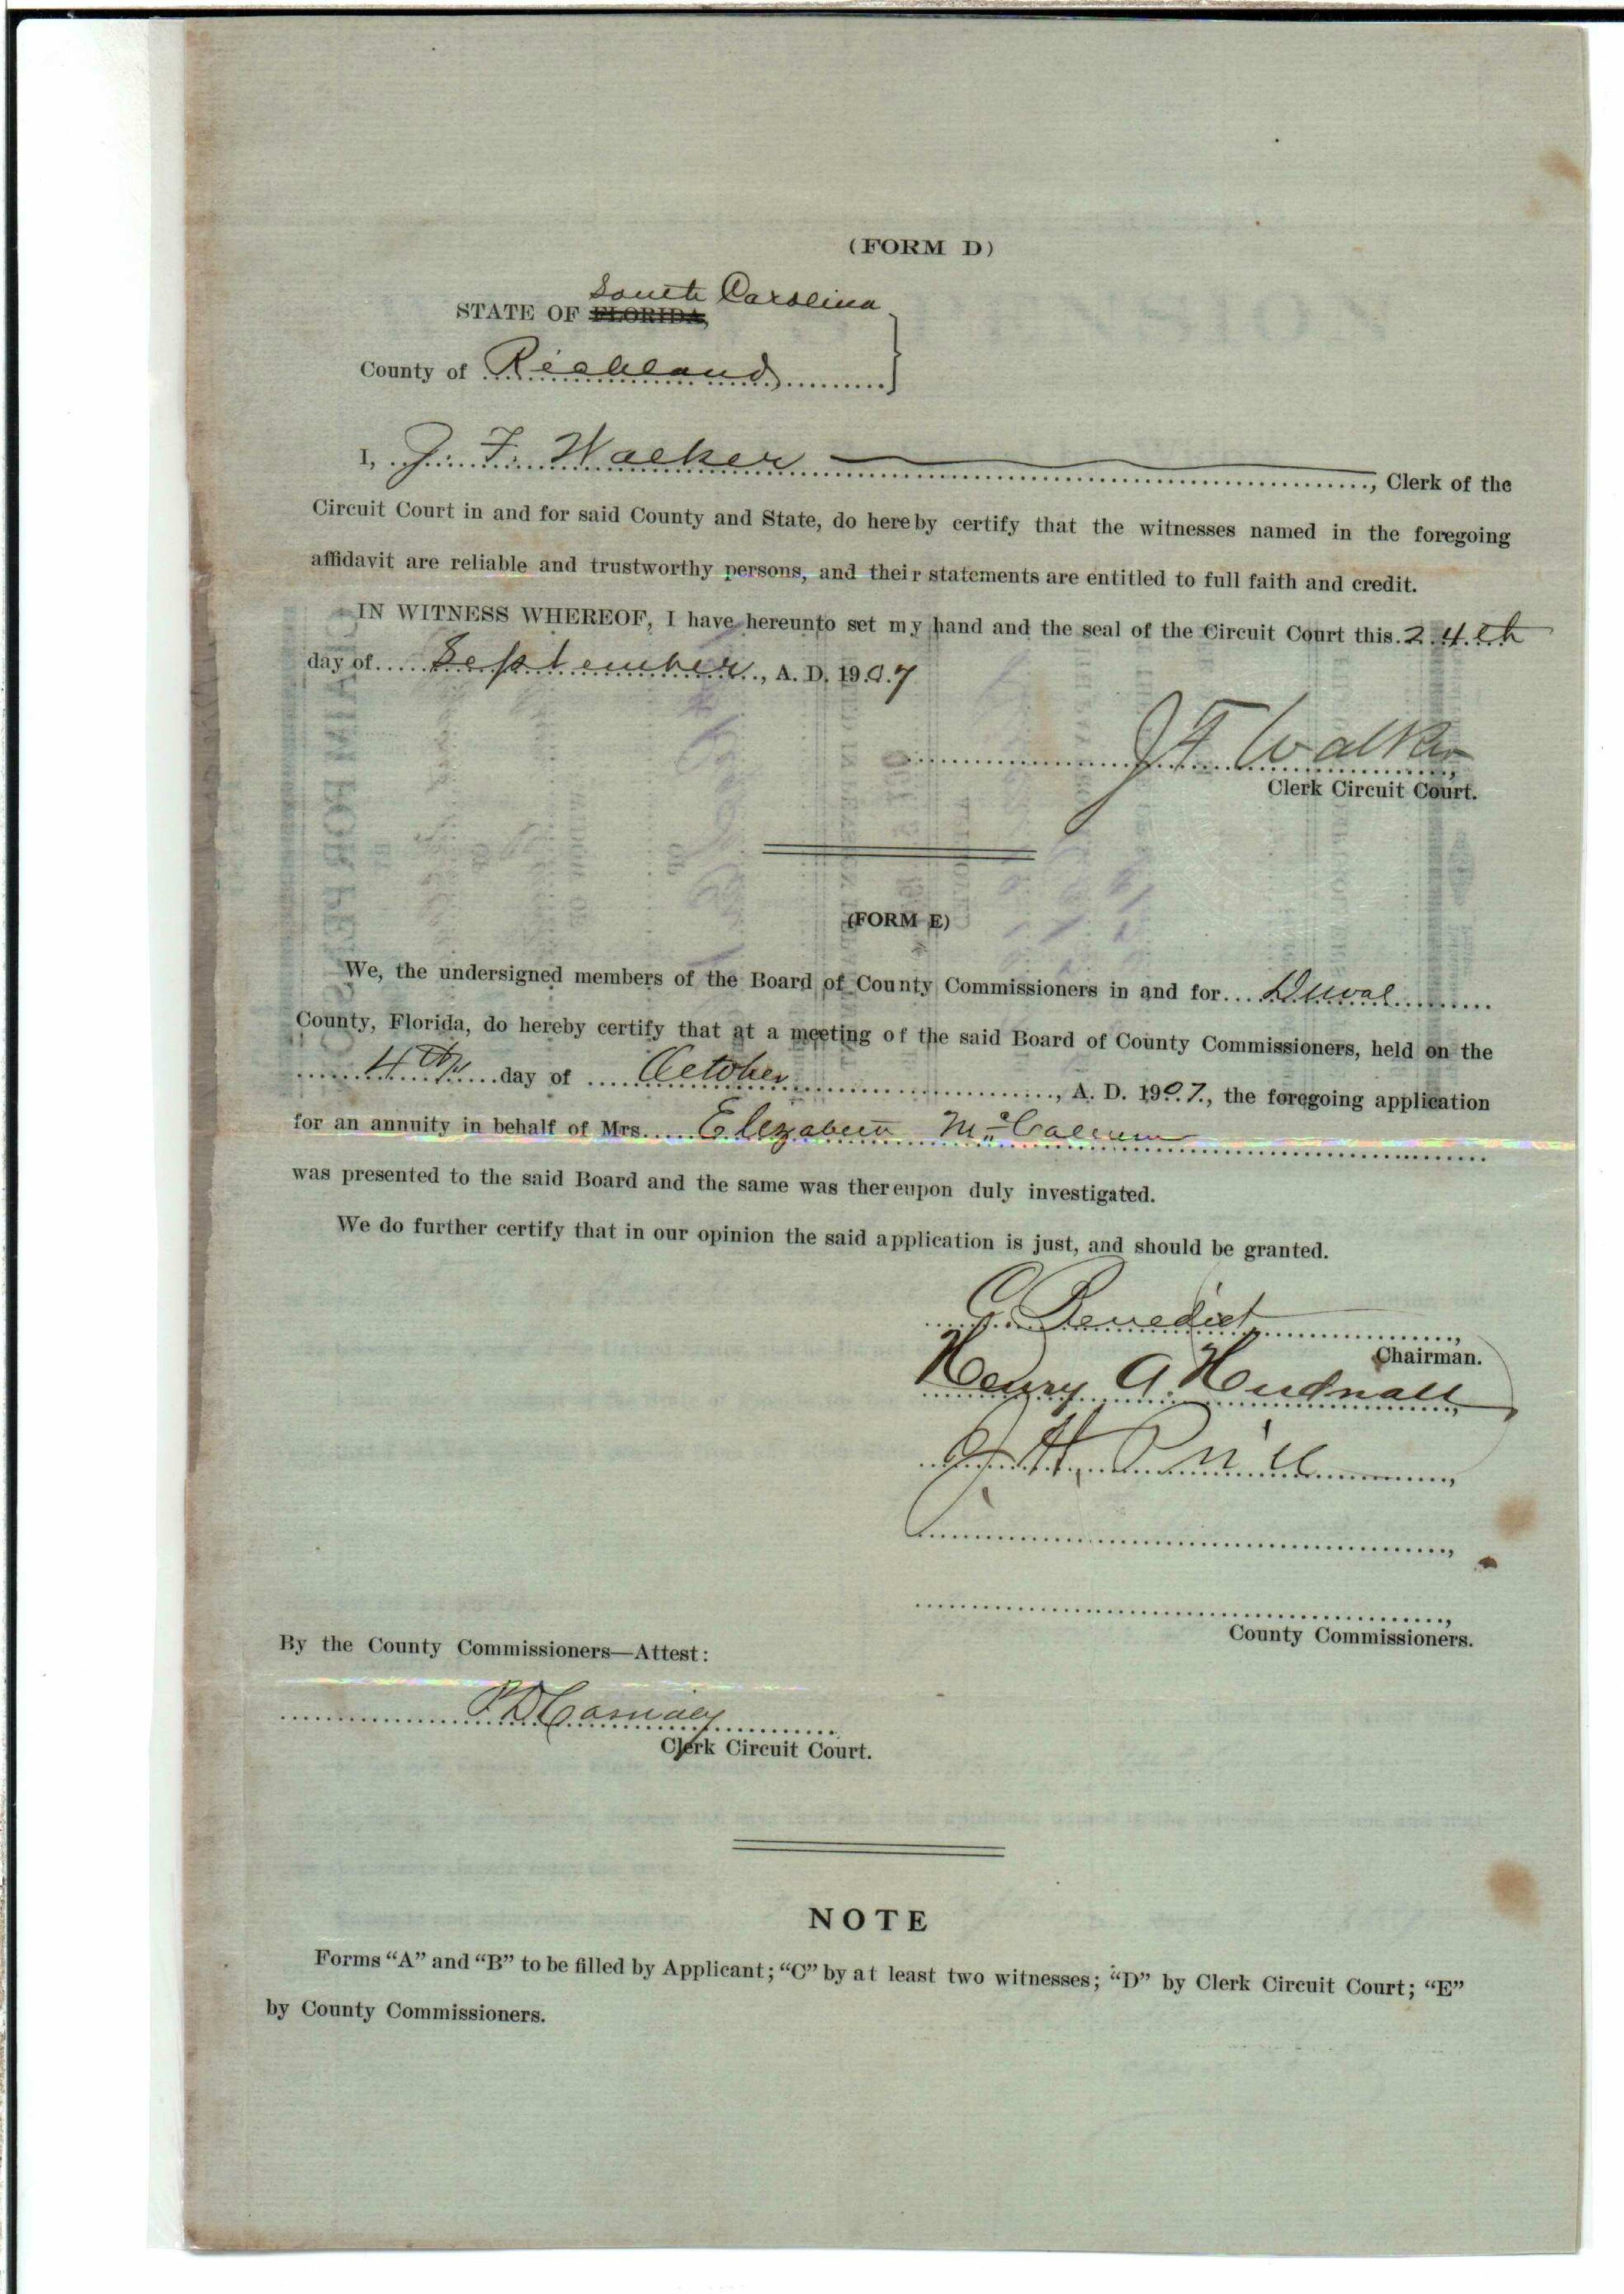 (FORM D)
South Carolina
STATE OF FLORIDA,
County of Richland
I, J. F. Walker, Clerk of the
Circuit Court in and for said County and State, do hereby certify that the witnesses named in the foregoing
affidavit are reliable and trustworthy persons, and their statements are entitled to full faith and credit.
IN WITNESS WHEREOF, I have hereunto set my hand and the seal of the Circuit Court this 24th
day of September, A. D. 1907
J F Walker
Clerk Circuit Court.
(FORM E)
We, the undersigned members of the Board of County Commissioners in and for Duval
County, Florida, do hereby certify that at a meeting of the said Board of County Commissioners, held on the
4th day of October, A. D. 1907, the foregoing application
for an annuity in behalf of Mrs. Elizabeth McCallum
was presented to the said Board and the same was thereupon duly investigated.
We do further certify that in our opinion the said application is just, and should be granted.
C. Benedict,
Chairman.
Henry A. Hudnall,
J. H.
County Commissioners.
By the County Commissioners—Attest:
P D Cassidey
Clerk Circuit Court.
NOTE
Forms "A" and "B" to be filled by Applicant; "C" by at least two witnesses; "D" by Clerk Circuit Court; "E"
by County Commissioners.